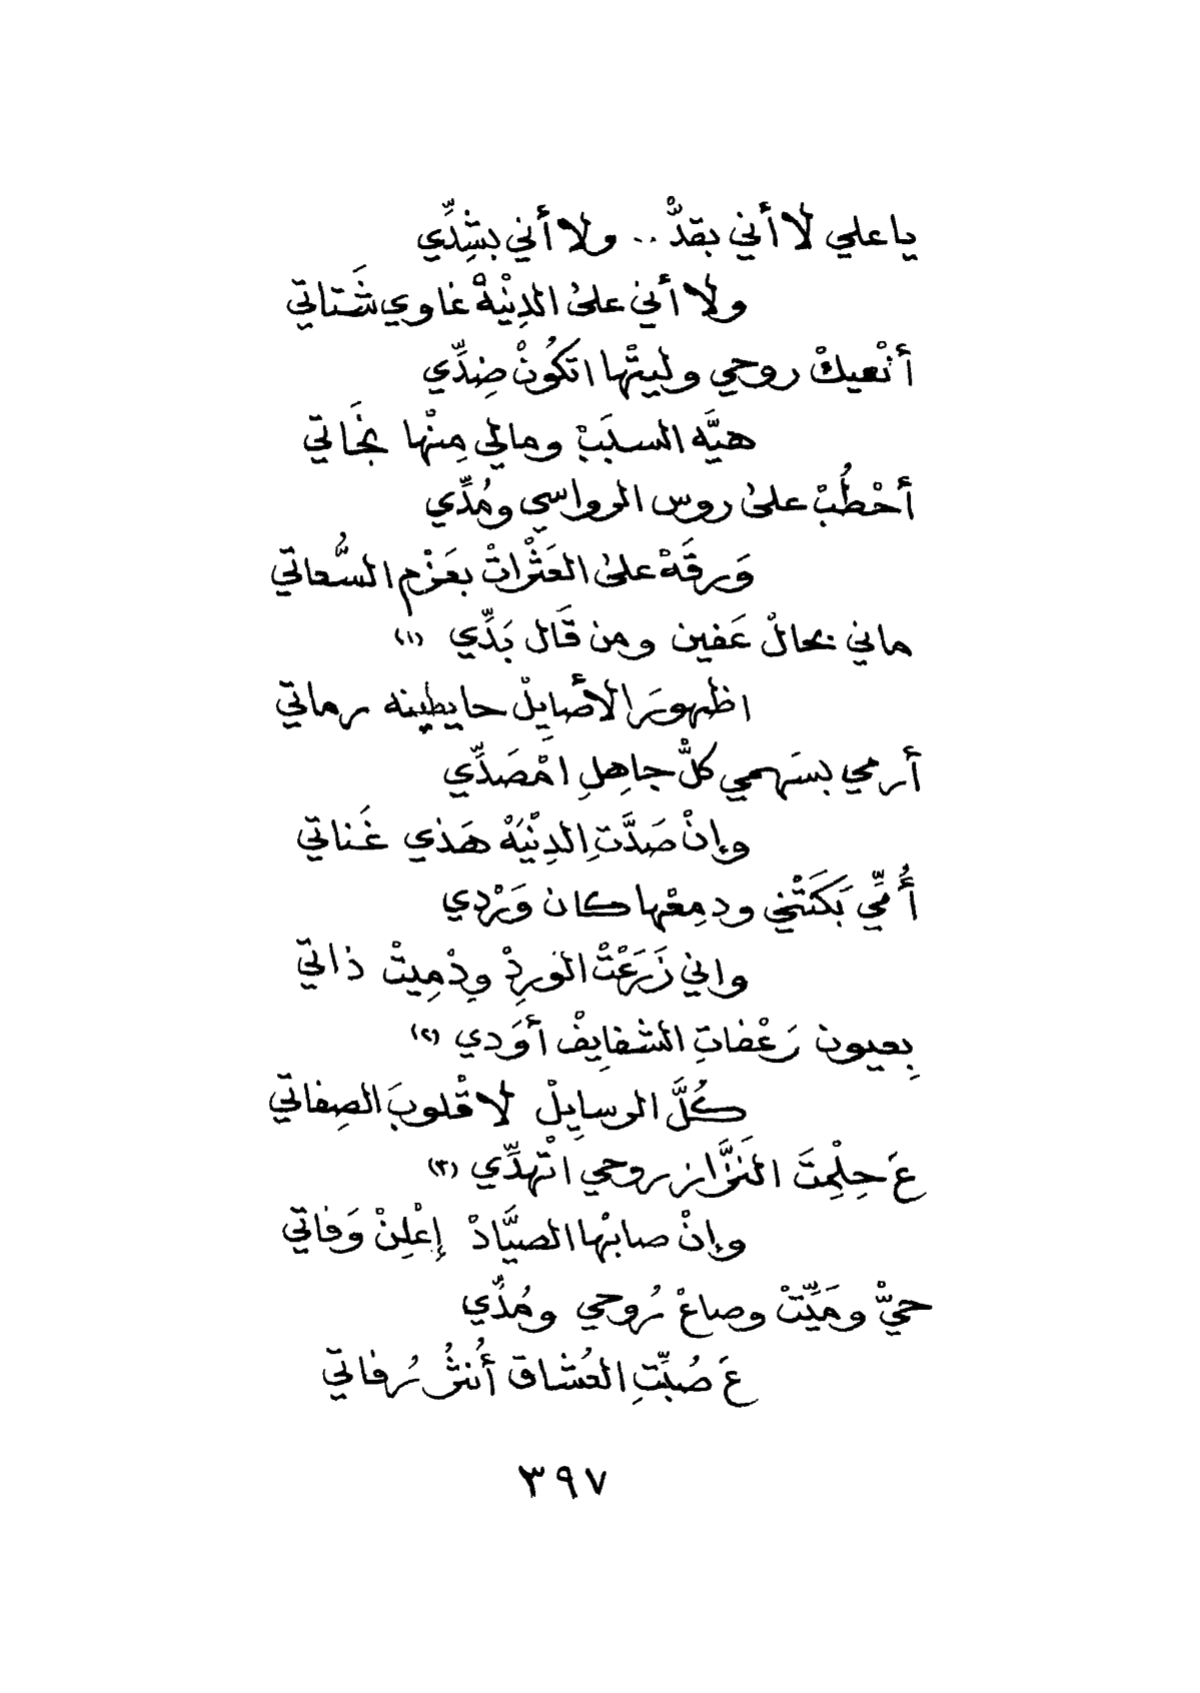 ياعلي لا أني بقدّْ .. ولا أني بشِدِّي
ولا أني على الدِنْيهْ غاوي شَتاتي
أنْعيكْ روحي وليتْها اتكُونْ ضِدِّي
هيَّه السبَبْ ومالي مِنْها نجَاتي
أحْطُبْ على روس الرواسي ومُدِّي
وَرقَهْ على العَثْراتْ بعَزْم السُّعاتي
ماني بحالْ عَفين ومن قَال بَدِّي (١)
اظهورَ الأصايِلْ حايطينه رماتي
أرمي بسَهمي كلّْ جاهِلِ امْصَدِّي
وإنْ صَدَّتِ الدِنْيَهْ هَذي غَناتي
أُمِّي بَكَتْني ودمِعْها كان وَرْدِي
واني زَرَعْتْ الوَرِدْ ودْمِيتْ ذاتي
بِعيون رَعْفاتِ الشفايِفْ أوَدي (٢)
كُلَّ الرسايِلْ لاقْلوبَ الصِفاتي
عَ حِلِمْتَ النَزَّاز روحي اتْهدِّي (٣)
وإنْ صابْها الصيَّادْ إعْلِنْ وَفاتي
حيّْ ومَيِّتْ وصاعْ رُوحي ومُدِّي
عَ صُبِّتِ العُشاق أُنثُر رُفاتي
٣٩٧